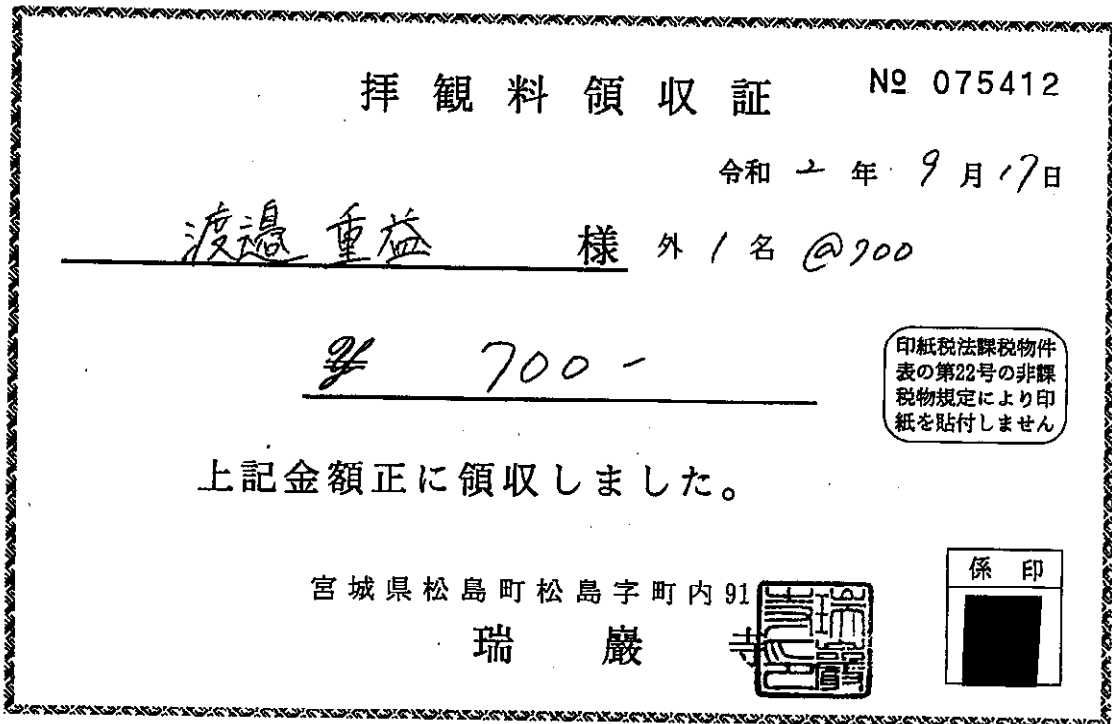 拝観料領収証
№ 075412
令和 2 年 9 月 17日
渡邉 重益 様 外 1 名 @700
¥ 700-
印紙税法課税物件
表の第22号の非課
税物規定により印
紙を貼付しません
上記金額正に領収しました。
宮城県松島町松島字町内 91
瑞巌寺
係印